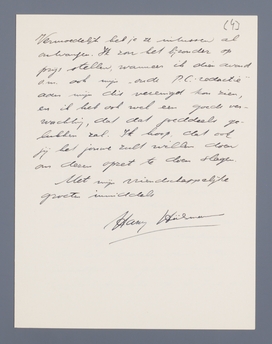 (4)
Vermoedelijk heb je ze intussen al
ontvangen. Ik zou het bijzonder op
prijs stellen, wanneer ik die avond
om ook mijn oude P.C.-redactie
aan mijn dis verenigd kon zien,
en ik heb ook wel een goede ver-
wachting, dat dat
lukken zal. Ik hoop, dat ook
jij het jouwe zult willen doen
om deze opzet te doen slagen
Met mijn vriendschappelijke
groeten inmiddels